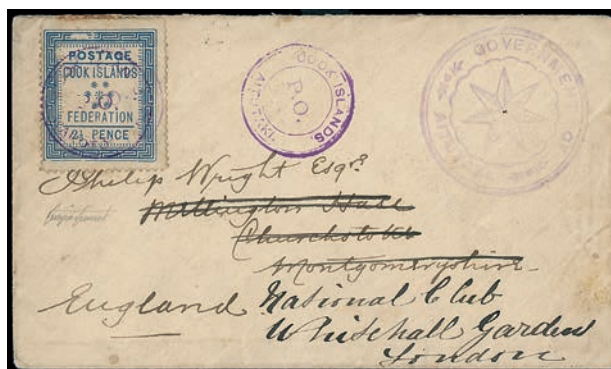 POSTAGE
COOK ISLANDS
FEDERATION
2½ PENCE
COOK ISLANDS.
P.O.
AITUTAKI
GOVERNMENT O
AITUTAKI
Philip Wright Esqre
Millington Hall
Churchstoke
Montgomeryshire
England National Club
Whitehall Garden
London